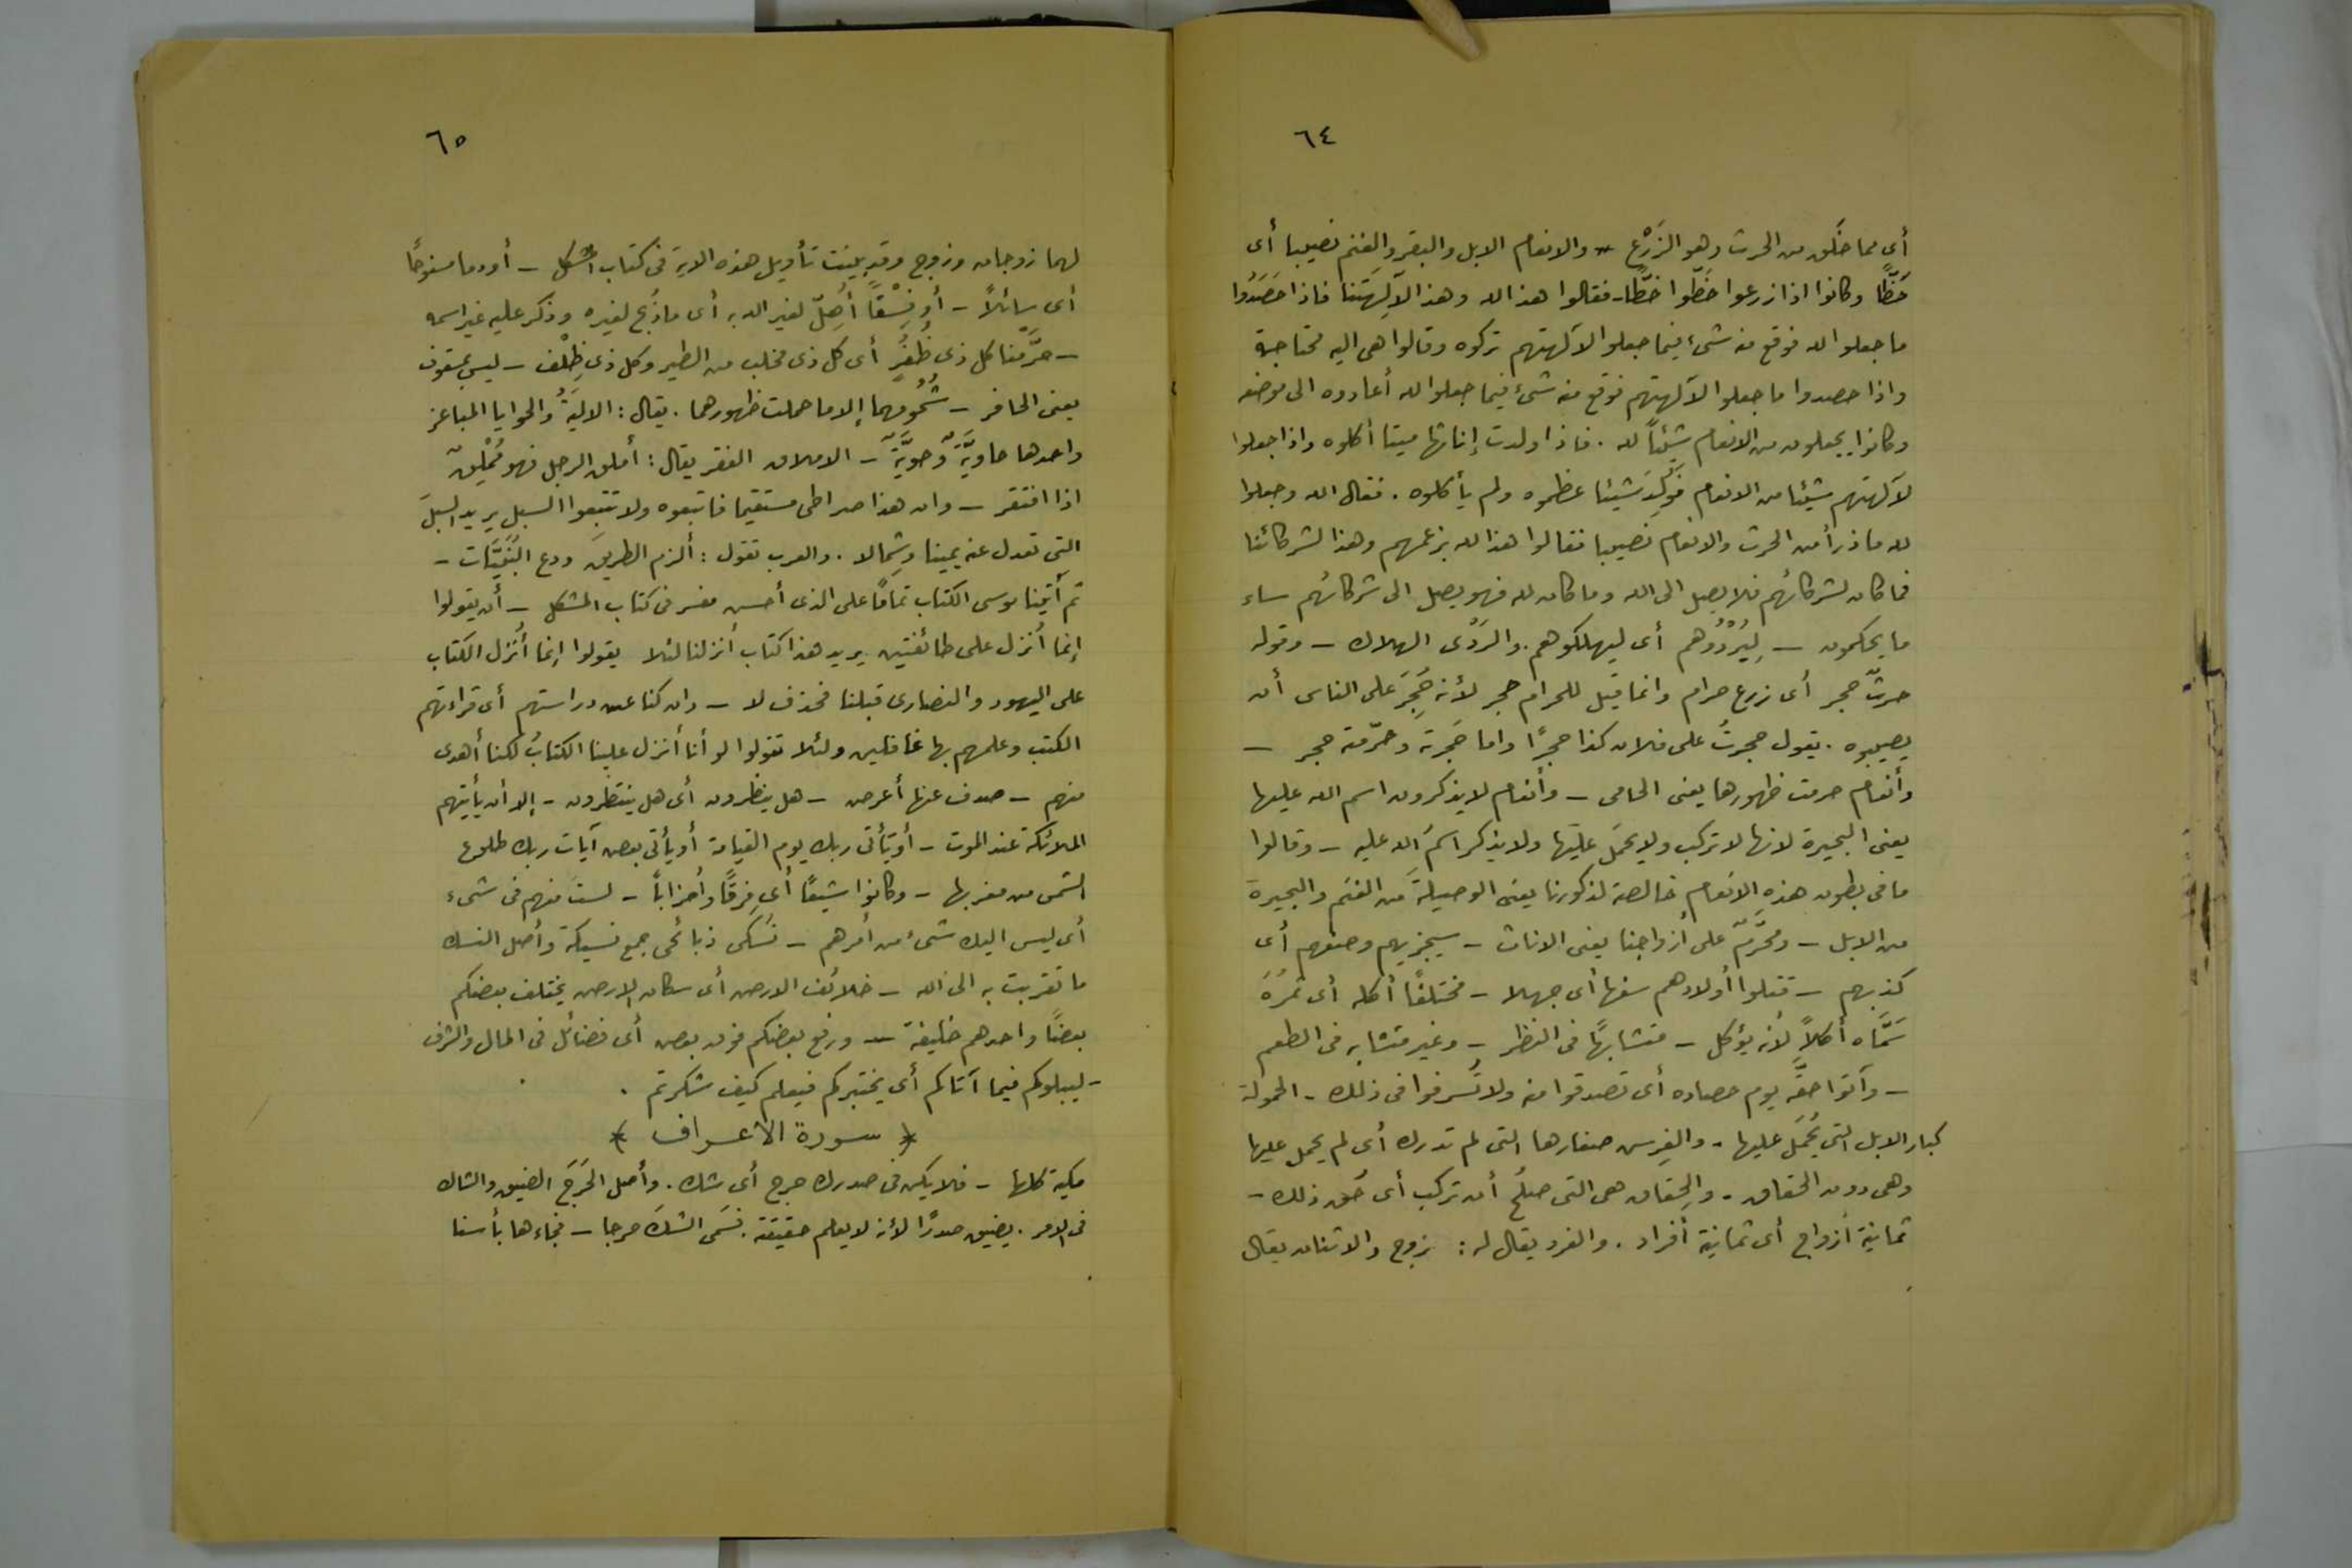 ٦٤
أى مما خلق من الحرث وهو الزَّرْع - والانعام الابل والبقر والغنم نصيبا أى
حَظًّا وكانوا اذا زرعوا خَطّوا خطًّا - فقالوا هذا لله وهذا لآلهتنا فاذا حَصَدُوا
ما جعلوا لله فوقع منه شىء فيما جعلوا لآلهتهم تركوه وقالوا هى اليه محتاجة
واذا حصدوا ما جعلوا لآلهتهم فوقع منه شىء فيما جعلوا لله أعادوه الى موضعه
وكانوا يجعلون من الانعام شيئاً لله . فاذا ولدت إناثها ميتا أكلوه واذا جعلوا
لآلهتهم شيئا من الانعام فوُلِدَ شيئا عظموه ولم يأكلوه . فقال الله وجعلوا
لله ما ذرأ من الحرث والانعام نصيبا فقالوا هذا لله بزعمهم وهذا لشركائنا
فما كان لشركائهم فلا يصل الى الله وما كان لله فهو يصل الى شركائهم ساء
ما يحكمون - لِيُرْدُوُهم أى ليهلكوهم . والرَدَى الهلاك - وقوله
حرثٌ حجر أى زرع حرام وانما قيل للحرام حجر لأنه حُجِرَ على الناس أن
يصيبوه . يقول حجرتُ على فلان كذا حجرًا واما حَجرته وحرّمته حجر -
وأنعام حرمت ظهورها يعنى الحامى - وأنعام لا يذكرون اسم الله عليها
يعنى البحيرة لانها لا تركب ولا يحمَل عليها ولا يذكر اسمَ الله عليه - وقالوا
ما فى بطون هذه الانعام خالصة لذكورنا يعنى الوصيلةَ من الغنم والبحيرة
من الابل - ومحَرَّمٌ على أزواجنا يعنى الاناث - سيجزيهم وصفهم أى
كذبهم - قتلوا أولادهم سفها أى جهلا - مختلفًا أكله أى ثمرُهَ
سَمَّاه أكلاً لأنه يؤكل - متشابهًا فى النظر - وغير متشابه فى الطعم
- وآتوا حقَّه يوم حصاده أى تصدقوا منه ولا تُسرفوا فى ذلك - الحمولة
كبار الابل التى يُحمَل عليها - والفرس صغارها التى لم تدرك أى لم يحمل عليها
وهى دون الحقاق - والحِقاق هى التى صلُح أن تركب أى حُق ذلك -
ثمانية أزواج أى ثمانية أفراد . والفرد يقال له : زوج والاثنان يقال
٦٥
لهما زوجان وزوج وقد بينت تأويل هذه الاية فى كتاب المشكل - أو دما مسفوحًا
أى سائلاً - أو فِسْقًا أُهِلّ لغير الله به أى ما ذُبح لغيره وذكر عليه غير اسمه
- حرَّمنا كل ذى ظُفُرٍ أى كل ذى مخلب من الطير وكل ذى ظِلْف - ليس بمشقوق
يعنى الحافر - شُحُومهما إلا ما حملت ظهورهما . يقال : الالَيَةُ والحوايا المباعر
واحدها حاويَّة وَحوِيَّة - الاملاق الفقر يقال : أملق الرجل فهو مُمْلِقٌ
اذا افتقر - وان هذا صراطى مستقيما فاتبعوه ولا تتبعوا السبل يريد السبلَ
التى تعدل عنه يمينا وشِمالا . والعرب تقول : ألزم الطريقَ ودع البُنَيَّات -
ثم آتينا موسى الكتاب تمامًا على الذى أحسن مفسر فى كتاب المشكل - أن يقولوا
إنما أُنزل على طائفتين يريد هذا كتاب أنزلنا لئلا يقولوا إنما أُنزل الكتاب
على اليهود والنصارى قبلنا فحذف لا - وان كنا عن دراستهم أى قراءتهم
الكتب وعلمهم بها غافلين ولئلا تقولوا لو أنا أنزل علينا الكتابُ لكنا أهدى
منهم - صدف عنها أعرض - هل ينظرون أى هل ينتظرون - إلا أن يأتيهم
الملائكة عند الموت - أو يأتى ربك يوم القيامة أو يأتى بعض آيات ربك طلوع
الشمس من مغربها - وكانوا شيعًا أى فِرقًا وأحزاباً - لستَ منهم فى شىء
أى ليس اليك شىء من أمرهم - نُسُكى ذبائحى جمع نسيكة وأصل النسك
ما تقربت به الى الله - خلائف الارض أى سكان الارض يختلف بعضكم
بعضًا واحدهم خليفة - ورفع بعضكم فوق بعض أى فضائل فى المال والشرف
- ليبلوكم فيما آتاكم أى يختبركم فيعلم كيف شكرتم .
* سورة الأعراف *
مكية كلها - فلا يكن فى صدرك حرج أى شك . وأصل الحَرَجَ الضيق والشاك
فى الامر . يضيق صدرًا لأنه لا يعلم حقيقته . فسَمى الشكَ حرجا - فجاءها بأسنا